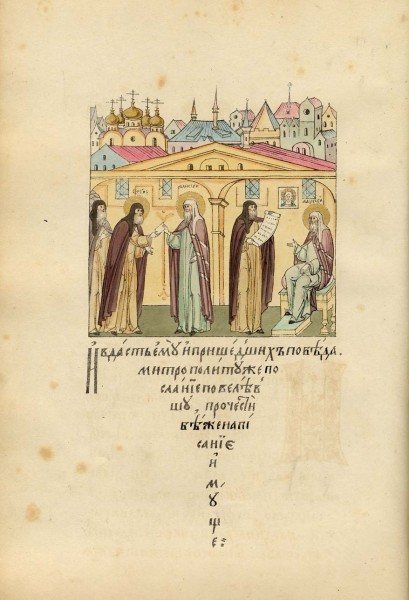 И вдастъ ему и пришедшихъ повѣда.
митрополитуже по
сланїе повелѣв
шу прочести
бѣженапї
санїе
и
м
ꙋ
ще: